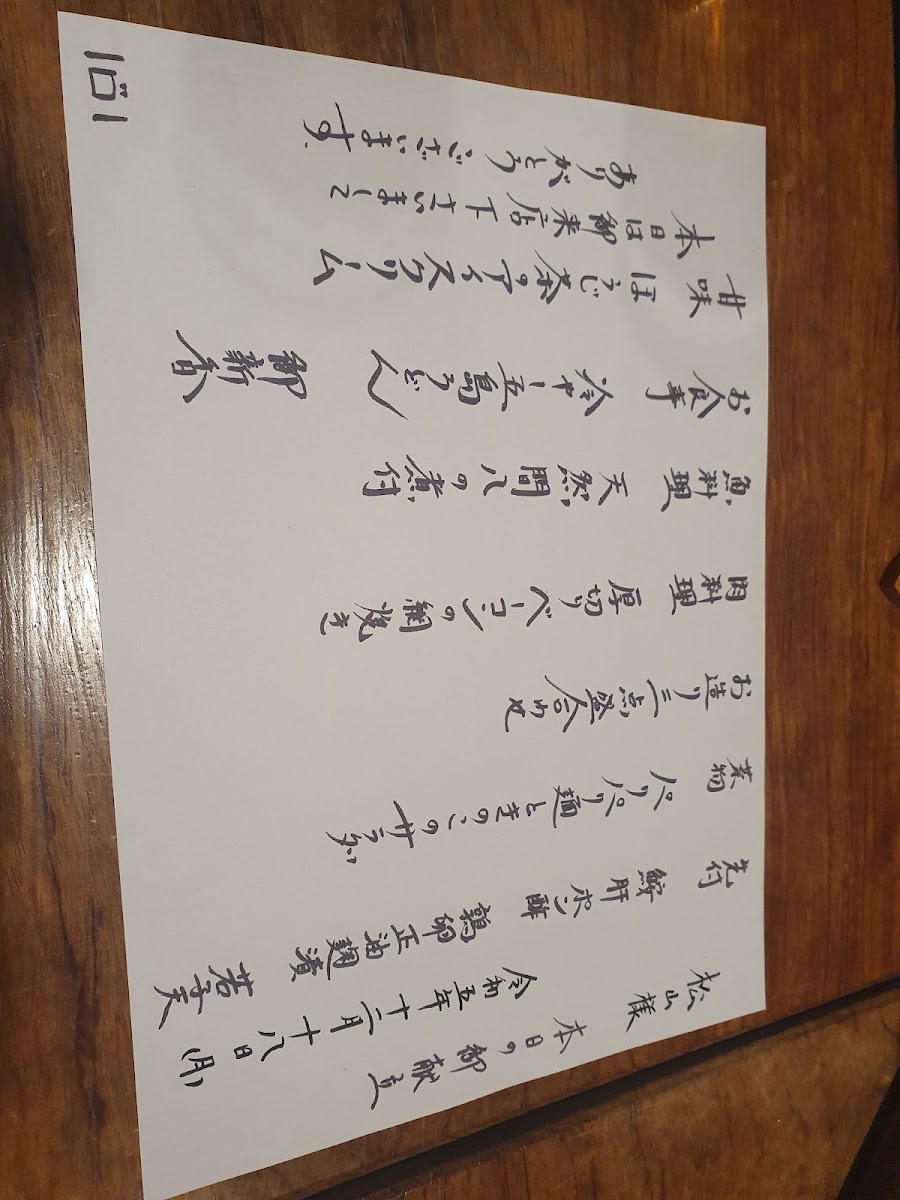 松山様 本日の御献立
令和五年十二月十八日(月)
先付 鮟肝ポン酢 鶉卵正油麹漬 茄子天
菜物 パリパリ麺ときのこのサラダ
お造り 三点盛合わせ
肉料理 厚切りベーコンの網焼き
魚料理 天然間八の煮付
お食事 冷やし五島うどん 御新香
甘味 ほうじ茶のアイスクリーム
本日は御来店下さいまして
ありがとうございます。